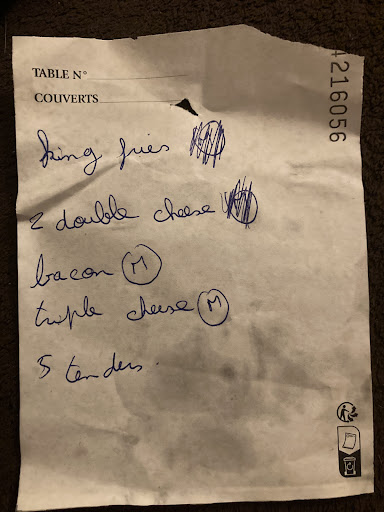 4216056
TABLE N°
COUVERTS
king fries
2 double cheese
bacon M
triple cheese M
5 tenders